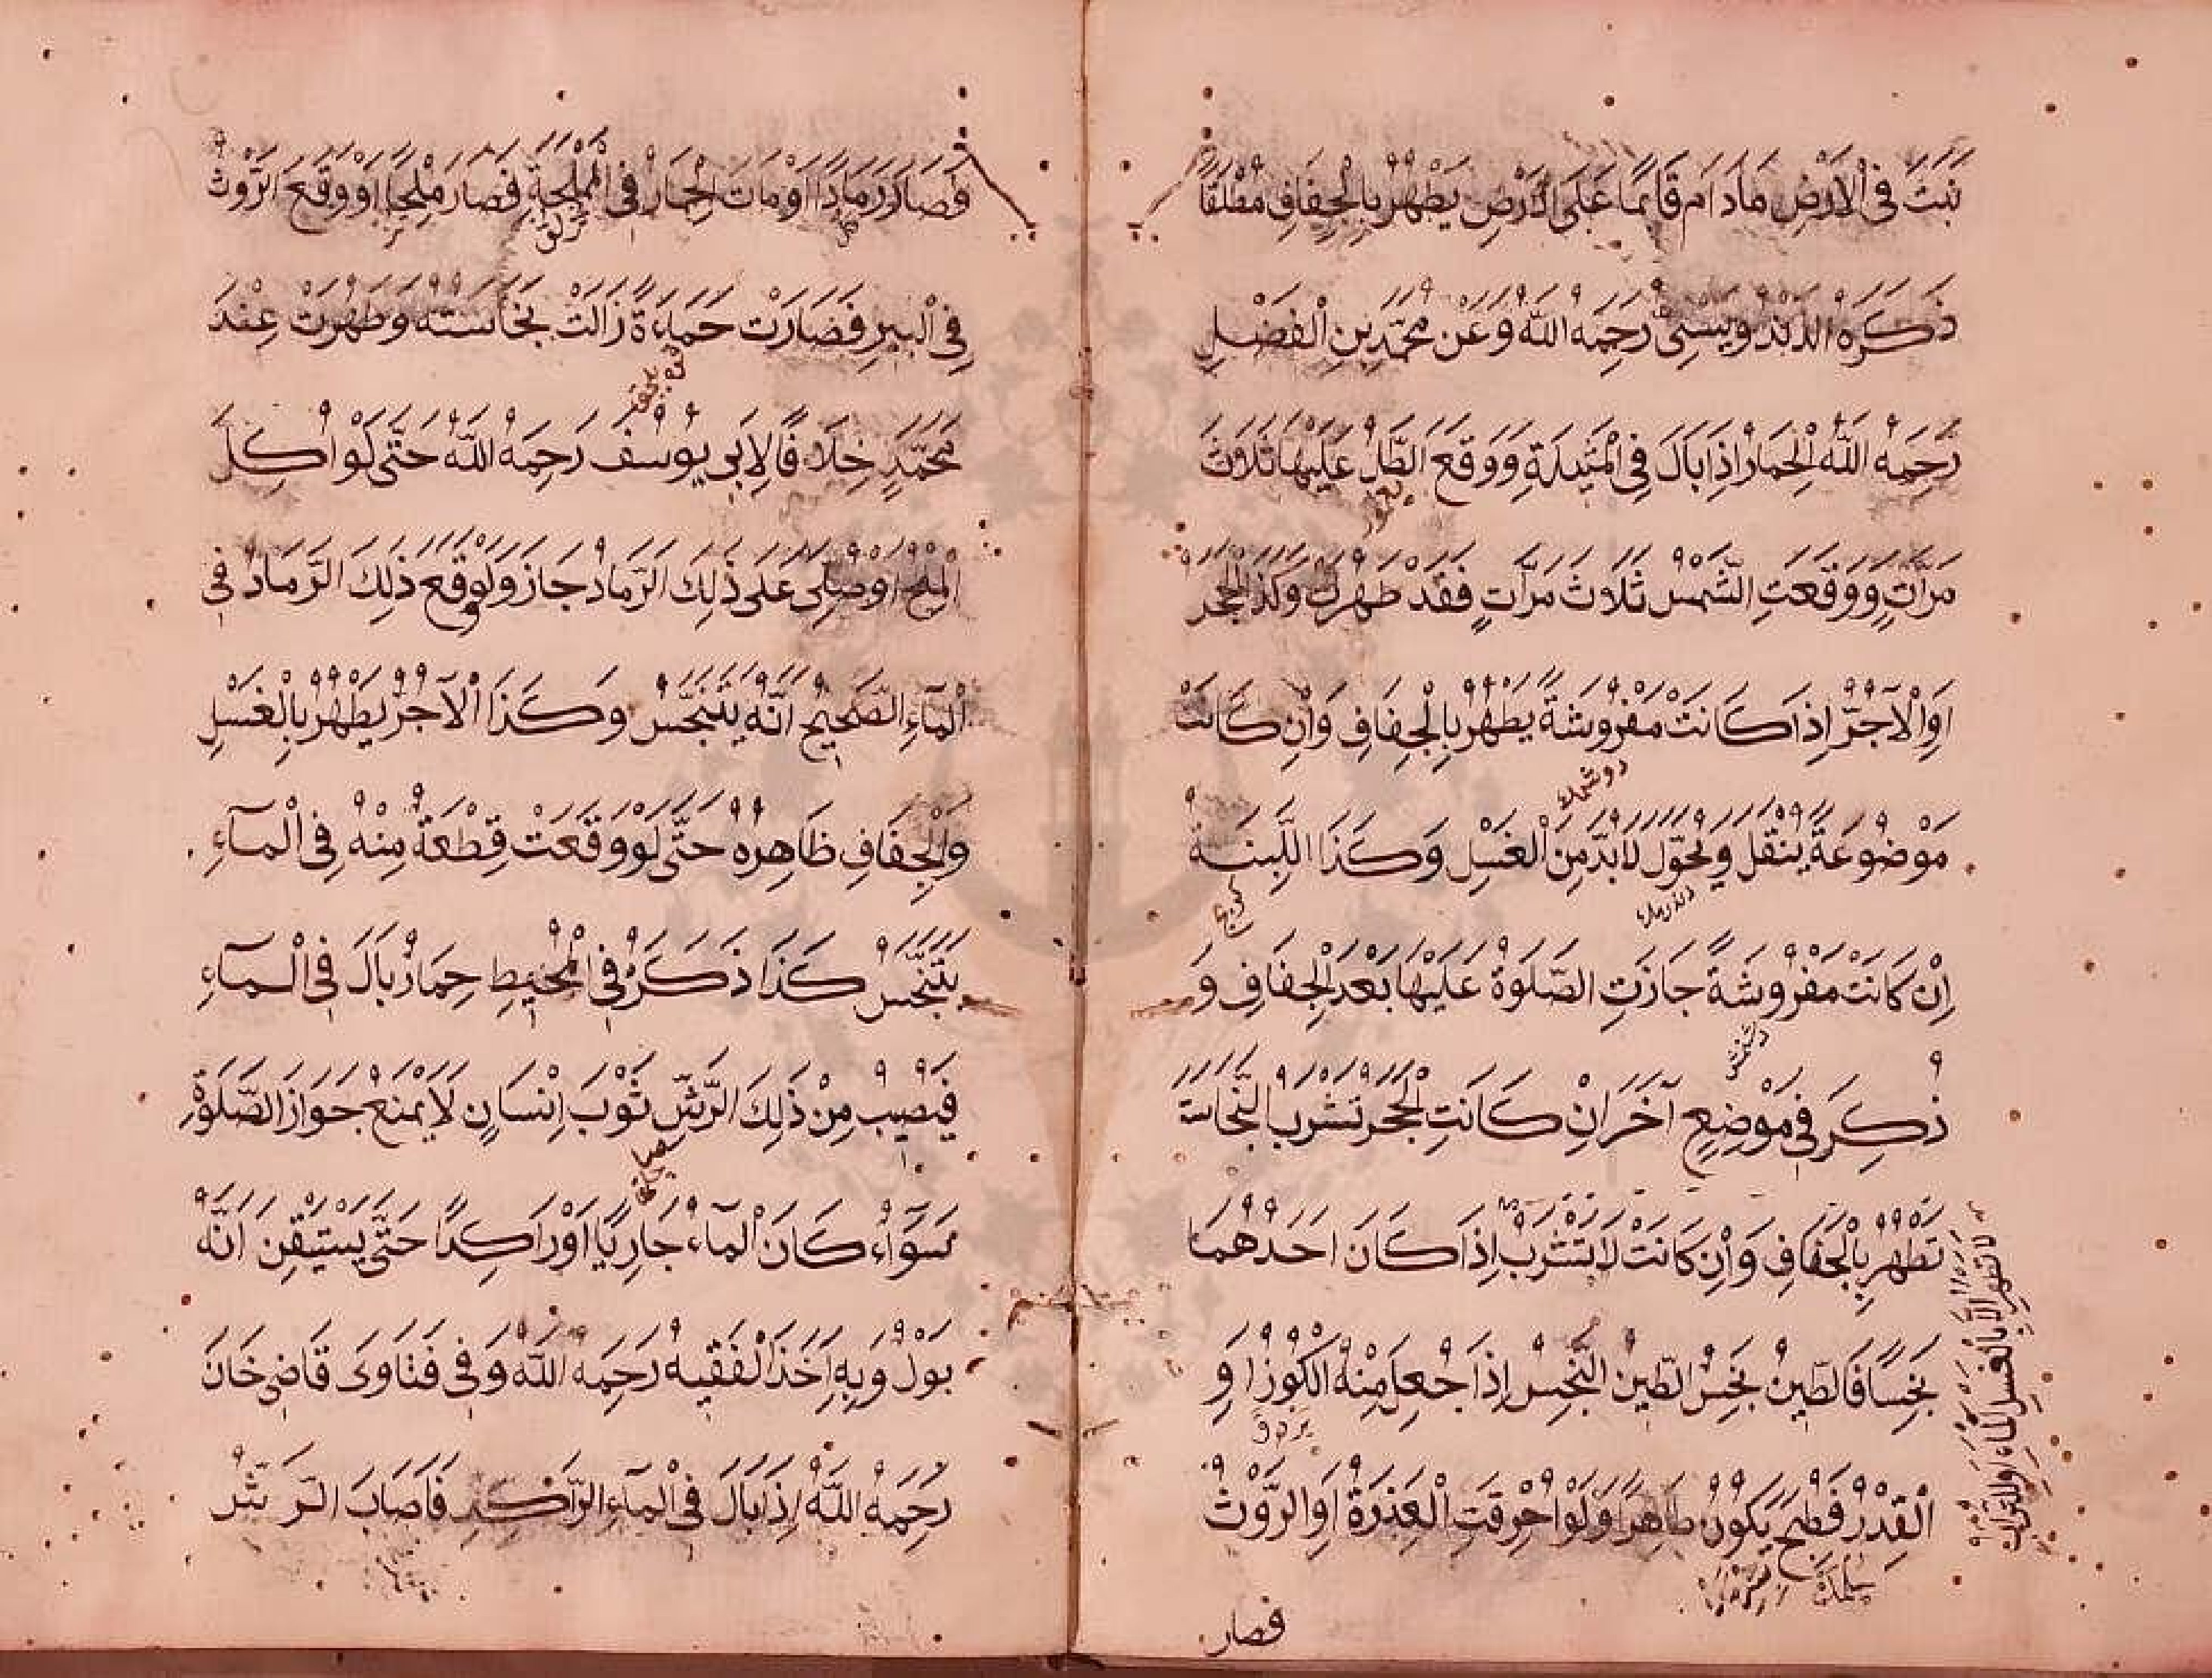 نَبَتَ فِى الْاَرْضِ مَادَامَ قَائِمًا عَلَى الْاَرْضِ يَطْهُرُ بِالْجَفَافِ مُطْلَقًا
ذَكَرَهُ الزَّنْدَوِيسِتِى رَحِمَهُ اللّٰهُ وَعَنْ مُحَمَّدِ بْنِ الْفَضْلِ
رَحِمَهُ اللّٰهُ الْحِمَارُ اِذَا بَالَ فِى الْمَثِيلَةِ وَوَقَعَ الظِّلُّ عَلَيْهَا ثَلَاثَ
مَرَّاتٍ وَوَقَعَتِ الشَّمْسُ ثَلَاثَ مَرَّاتٍ فَقَدْ طَهُرَتْ وَكَذَا الْحَجَرُ
اَوِ الْاٰجُرُّ اِذَا كَانَتْ مَفْرُوشَةً يَطْهُرُ بِالْجَفَافِ وَاِنْ كَانَتْ
مَوْضُوعَةً يُنْقَلُ وَيُحَوَّلُ لَابُدَّ مِنَ الْغَسْلِ وَكَذَا اللَّبِنَةُ
اِنْ كَانَتْ مَفْرُوشَةً جَازَتِ الصَّلٰوةُ عَلَيْهَا بَعْدَ الْجَفَافِ وَ
ذُكِرَ فِى مَوْضِعٍ اٰخَرَ اِنْ كَانَتِ الْحَجَرُ تَشْرَبُ النَّجَاسَةَ
تَطْهُرُ بِالْجَفَافِ وَاِنْ كَانَتْ لَا تَشْرَبُ اِذَا كَانَ اَحَدُهُمَا
لا تطهر الا بالغسل الماء او التراب
نَجِسًا فَالطِّينُ نَجِسٌ الطِّينُ النَّجِسُ اِذَا جُعِلَ مِنْهُ الْكُوزُ اَوِ
الْقِدْرُ فَطُبِخَ يَكُونُ طَاهِرًا وَلَوْ اُحْرِقَتِ الْعَذِرَةُ اَوِ الرَّوْثُ
فصار
فَصَارَ رَمَادًا اَوْ مَاتَ الْحِمَارُ فِى الْمَمْلَحَةِ فَصَارَ مِلْحًا اَوْ وَقَعَ الرَّوْثُ
فِى الْبِيرِ فَصَارَتْ حَمْاَةً زَالَتْ نَجَاسَتُهُ وَطَهُرَتْ عِنْدَ
مُحَمَّدٍ خِلَافًا لِاَبِى يُوسُفَ رَحِمَهُ اللّٰهُ حَتّٰى لَوْ اَكَلَ
الْمِلْحَ اَوْ صَلَّى عَلٰى ذٰلِكَ الرَّمَادِ جَازَ وَلَوْ وَقَعَ ذٰلِكَ الرَّمَادُ فِى
الْمَاءِ الصَّحِيحُ اَنَّهُ يَتَنَجَّسُ وَكَذَا الْاٰجُرُّ يَطْهُرُ بِالْغَسْلِ
وَالْجَفَافِ ظَاهِرُهُ حَتّٰى لَوْ وَقَعَتْ قِطْعَةٌ مِنْهُ فِى الْمَآءِ
يَتَنَجَّسُ كَذَا ذَكَرَهُ فِى الْمُحِيطِ حِمَارٌ بَالَ فِى الْمَآءِ
فَيُصِيبُ مِنْ ذٰلِكَ الرَّشِّ ثَوْبَ اِنْسَانٍ لَا يَمْنَعُ جَوَازَ الصَّلٰوةِ
سَوَآءٌ كَانَ الْمَآءُ جَارِيًا اَوْ رَاكِدًا حَتّٰى يَسْتَيْقِنَ اَنَّهُ
بَوْلٌ وَبِهِ اَخَذَ الْفَقِيهُ رَحِمَهُ اللّٰهُ وَفِى فَتَاوٰى قَاضِى خَانَ
رَحِمَهُ اللّٰهُ اِذَا بَالَ فِى الْمَآءِ الرَّاكِدِ فَاَصَابَ الرَّشُّ